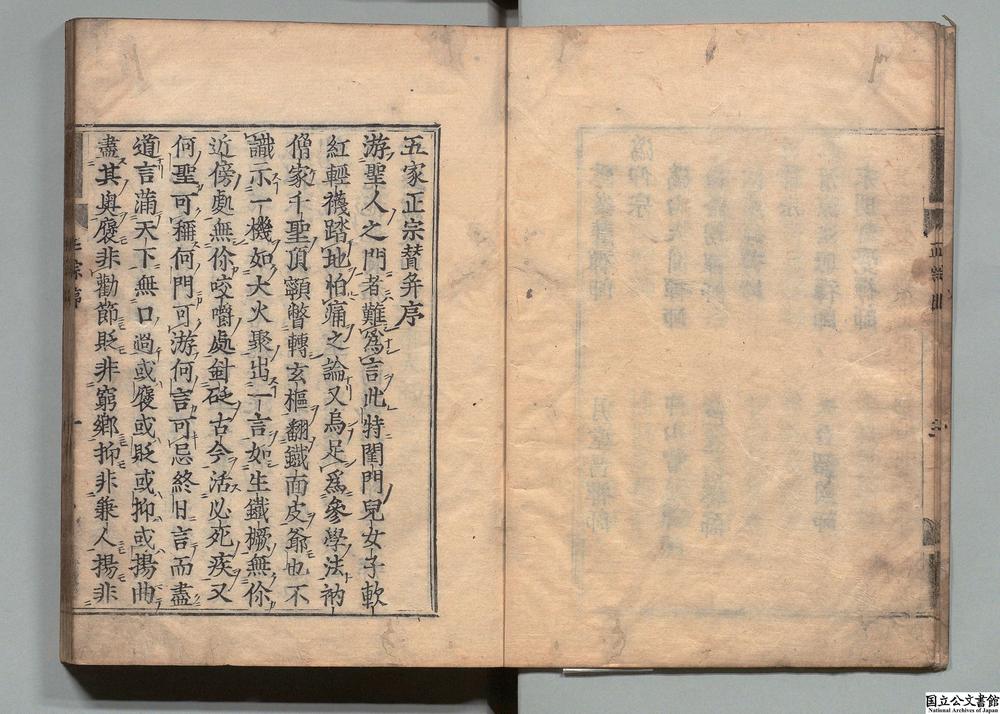 五家正宗賛并序
游聖人之門者難爲言此特閨門兒女子軟
紅輕襪踏地怕痛之論又烏足爲參學法衲
僧家千聖頂𩕳瞥轉玄樞翻鐵面皮爺也不
識示一機如大火聚出一言如生鐵橛無你
近傍處無你咬嚼處針砭古今活必死疾又
何聖可稱何門可游何言可忌終日言而盡
道言滿天下無口過或襃或貶或抑或揚曲
盡其奥襃非勸節貶非窮鄉抑非兼人揚非
国立公文書館
National Archives of Japan